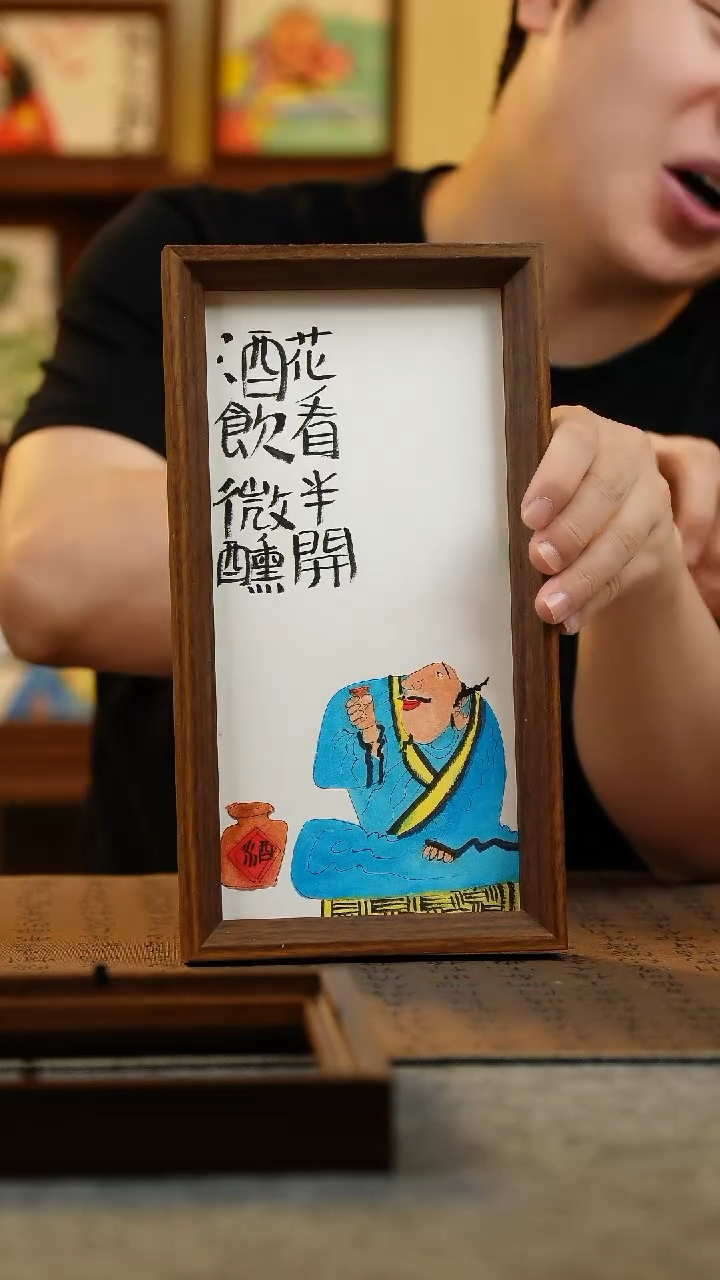 花看半開
酒飲微醺
酒